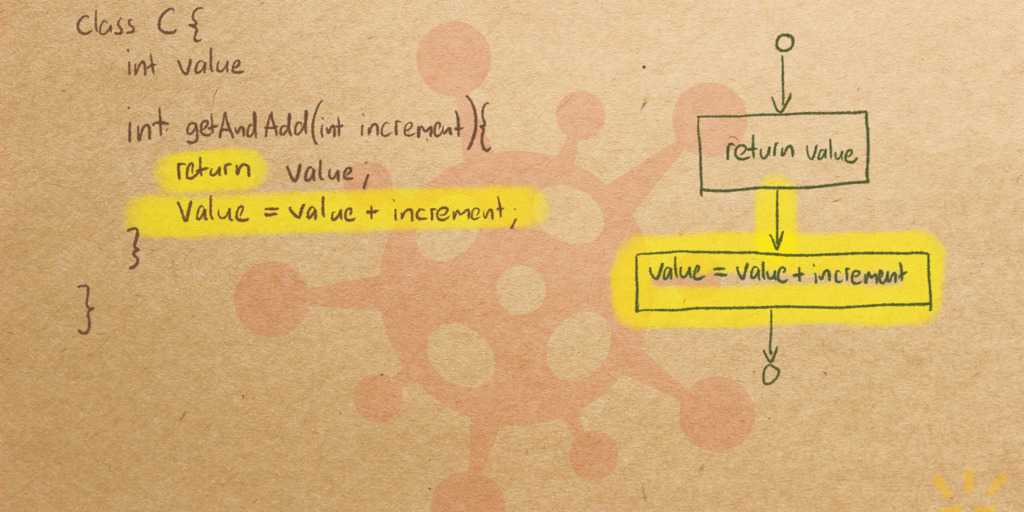 Class C {
int value
int getAndAdd(int increment){
return value;
Value = value + increment;
}
}
return value
value = value + increment